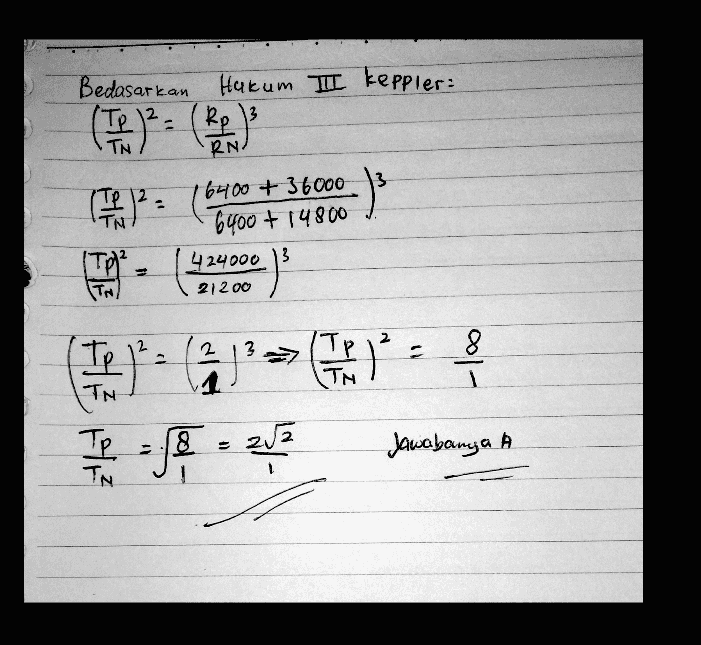 Bedasarkan Hukum III keppler:
(Tp/TN)² = (Rp/RN)³
(Tp/TN)² = (6400 + 36000/6400 + 14800)³
(Tp/TN)² = (424000/21200)³
(Tp/TN)² = (2/1)³ => (Tp/TN)² = 8/1
Tp/TN = √8/1 = 2√2/1 Jawabanya A